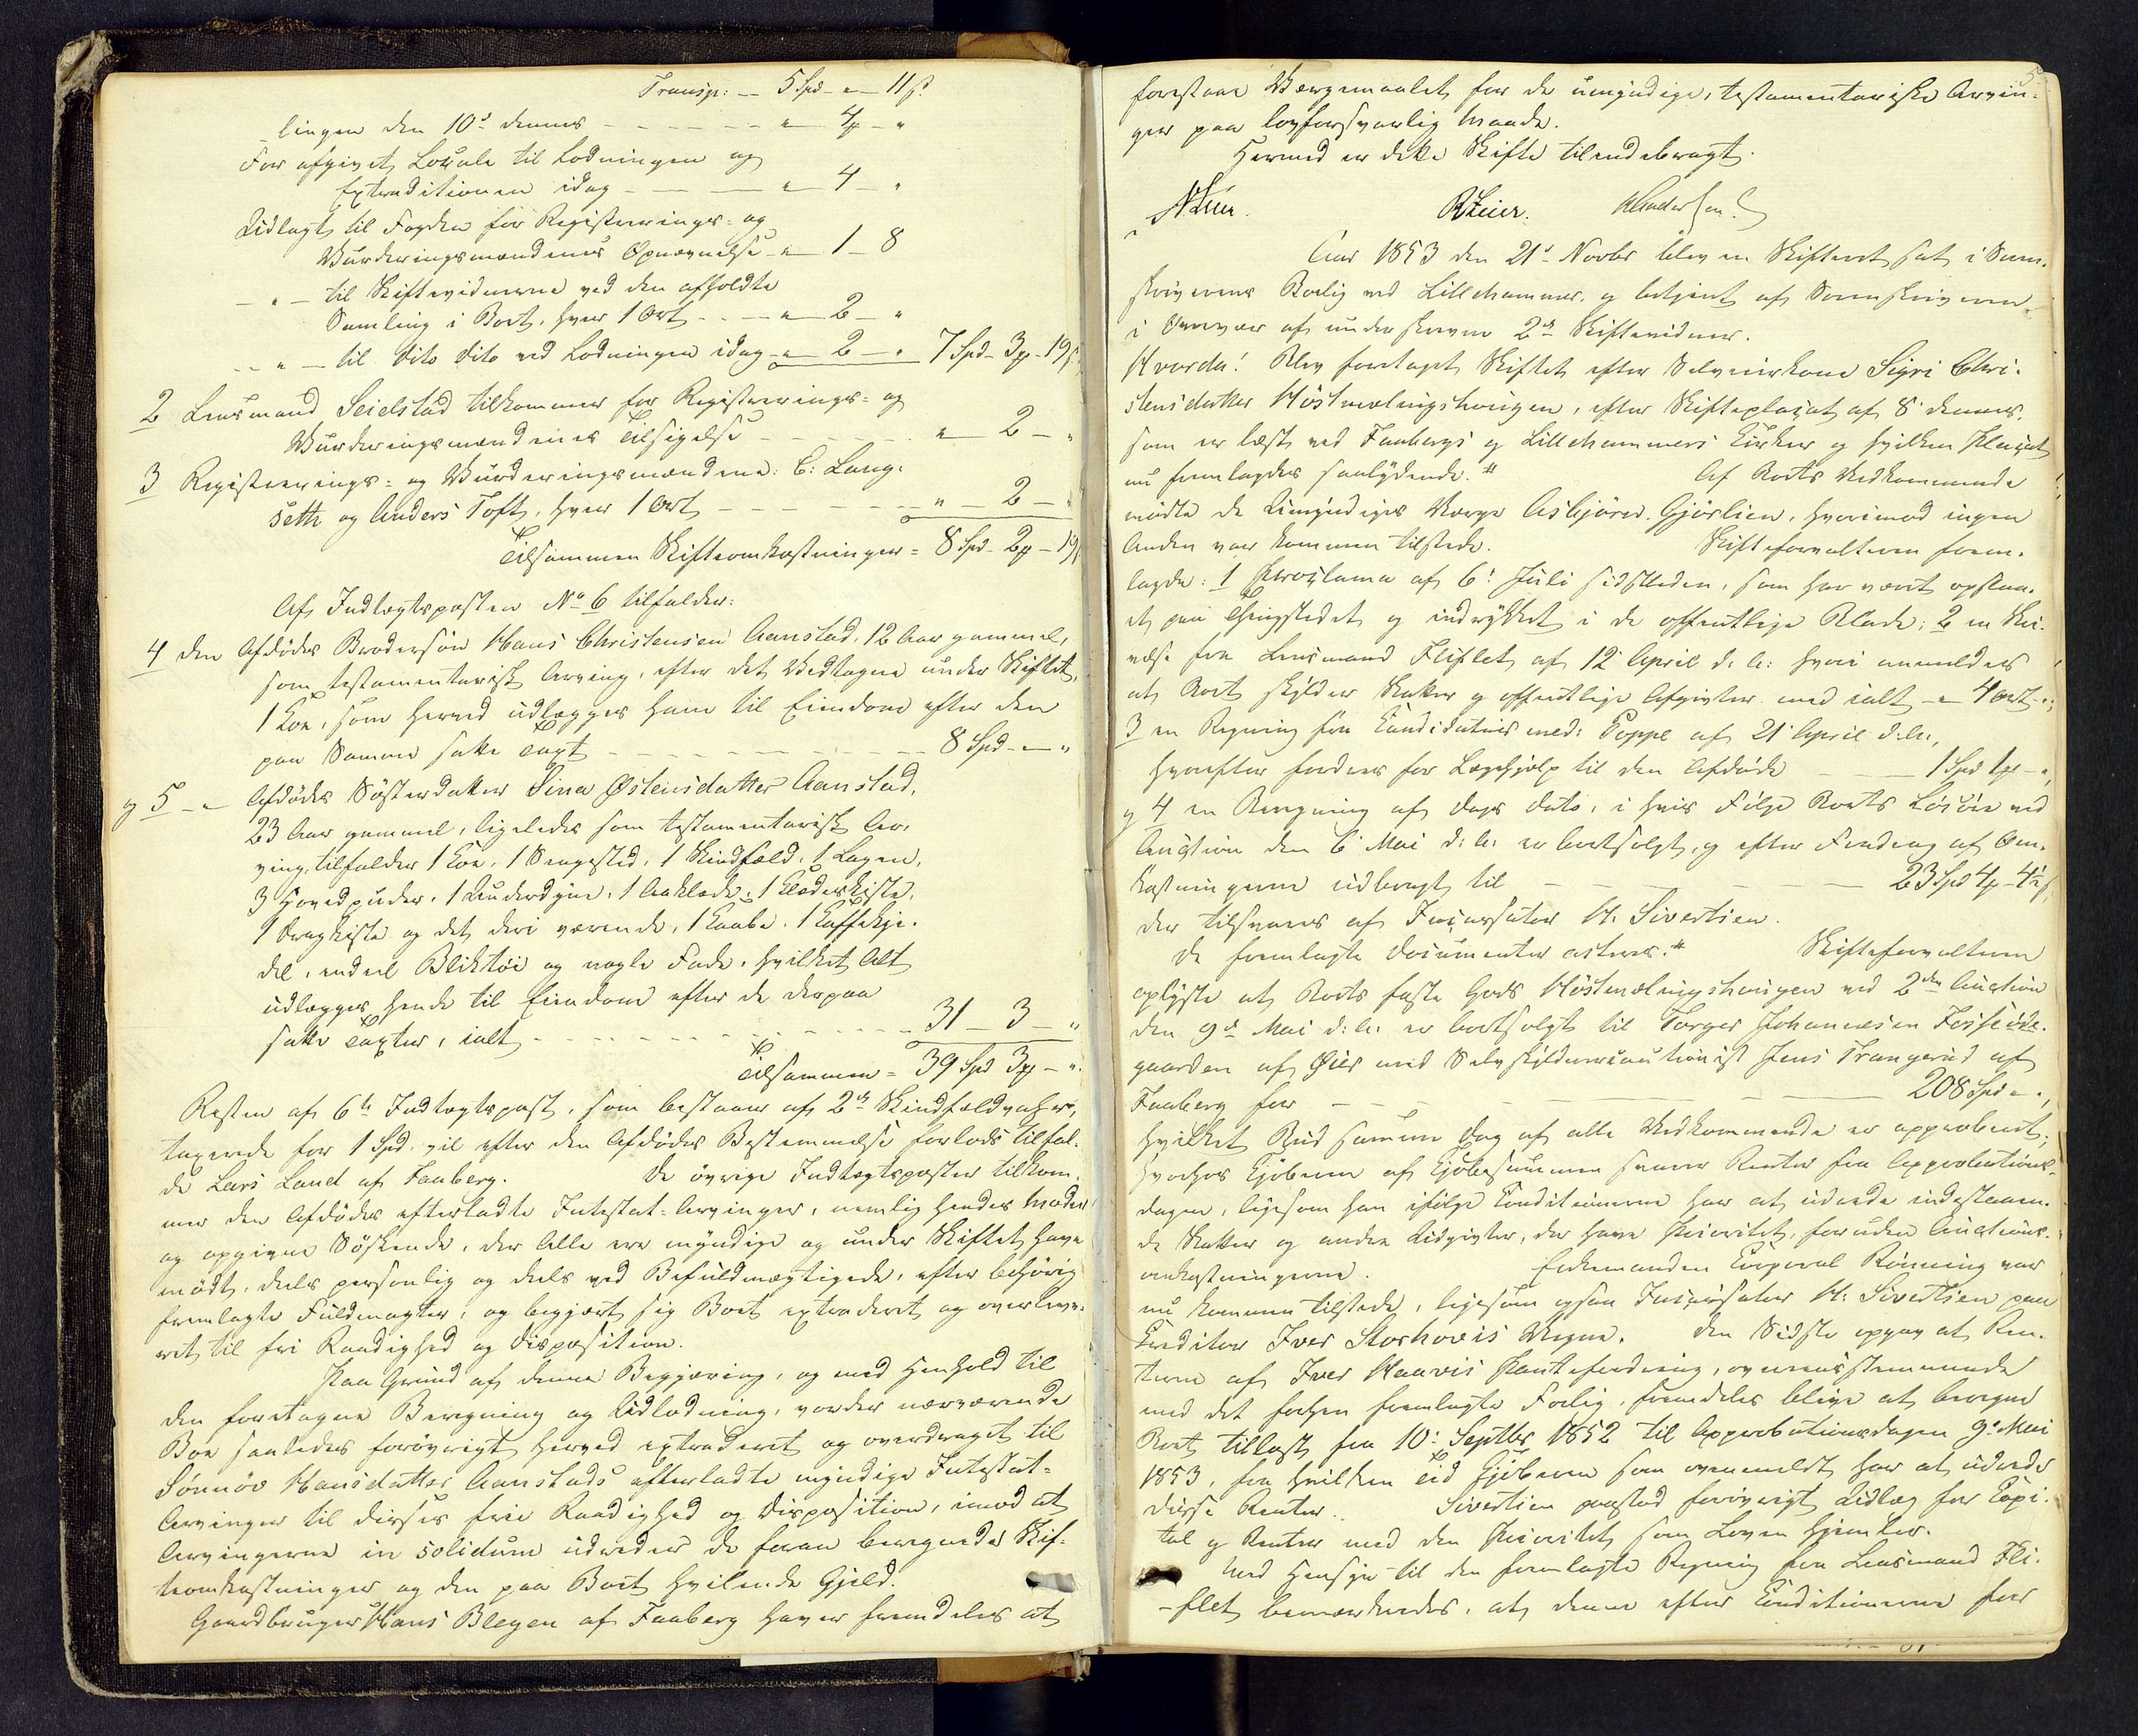 Transp: — 5 Spd - " - 11 ß
lingen den 10d dennes - - - - " - 4 ort - "
For afgivet Locale til Lodningen og
Extraditionen idag - - - " 4 "
Udlagt til Fogden for Registrerings- og
Vurderingsmændenes Opnævnelse - " - 1 - 8
- " - til Skiftevidnerne ved den afholdte
Samling i Boet, hver 1 Ort - - - " - 2 - "
- " - til dito dito ved Lodningen idag - " - 2 - " 7 Spd - 3 ort - 19 ß
2 Lensmand Seielstad tilkommer for Registrerings- og
Vurderingsmændenes Tilsigelse - - - - - " - 2 - "
3 Registrerings- og Vurderingsmændene: C: Lang-
seth og Anders Toft, hver 1 Ort - - - - - " - 2 - "
Tilsammen Skifteomkostninger = 8 Spd - 2 ort - 19 ß
Af Indtægtsposten No 6 tilfalder:
4 den Afdødes Brodersøn Hans Christensen Aanstad, 12 Aar gammel,
som testamentarisk Arving, efter det Vedtagne under Skiftet,
1 Koe, som herved udlægges ham til Eiendom efter den
paa Samme satte Taxt - - - - - - 8 Spd - " - "
og 5 - " - Afdødes Søsterdatter Sina Østensdatter Aanstad,
23 Aar gammel, ligeledes som testamentarisk Ar-
ving, tilfalder 1 Koe, 1 Sengested, 1 Skindfæld, 1 Lagen,
3 Hovedpuder, 1 Underdyne, 1 Aaklæde, 1 Klædeskiste,
1 Dragkiste og det deri værende, 1 Kaabe, 1 Kaffekje-
del, endeel Bliktøi og nogle Fade, hvilket Alt
udlægges hende til Eiendom efter de derpaa
satte Taxter, ialt - - - - - - - 31 - 3 - "
Tilsammen = 39 Spd 3 ort - "
Resten af 6te Indtægtspost, som bestaaer af 2de Skindfældvaher,
taxerede for 1 Spd. vil efter den Afdødes Bestemmelse forlods tilfal-
de Lars Land af Faaberg. De øvrige Indtægtsposter tilkom-
mer den Afdødes efterladte Intestat-Arvinger, nemlig hendes Moder
og opgivne Søskende, der Alle ere myndige og under Skiftet have
mødt, deels personlig og deels ved Befuldmægtigede, efter behørig
fremlagte Fuldmagter, og begjært sig Boet extraderet og overleve-
ret til fri Raadighed og Disposition.
Paa Grund af denne Begjæring, og med Henhold til
den foretagne Beregning og Udlodning, vorder nærværende
Boe saaledes forøvrigt herved extraderet og overdraget til
Sønnøv Hansdatter Aanstads efterladte myndige Intestat-
Arvinger til disses frie Raadighed og Disposition, imod at
Arvingerne in solidum udreder de foran beregnede Skif-
teomkostninger og den paa Boet hvilende Gjeld.
Gaardbruger Hans Blegen af Faaberg haver fremdeles at
5
forestaae Værgemaalet for de umyndige, testamentariske Arvin-
ger paa lovforsvarlig Maade.
Hermed er dette Skifte tilendebragt.
Aar 1853 den 21d Novbr blev en Skifteret sat i Soren-
skriverens Boelig ved Lillehammer, og betjent af Sorenskriveren
i Overvær af underskrevne 2de Skiftevidner.
Hvorda! Blev foretaget Skiftet efter Selveierkone Sigri Chri-
stensdatter Höstmælingshougen, efter Skifteplacat af 8 dennes,
som er læst ved Faabergs og Lillehammers Kirker og hvilken Placat
nu fremlagdes saalydende. # Af Boets Vedkommende
mødte de Umyndiges Værge Asbjörn Gjörlien, hvorimod ingen
Anden var kommen tilstede. Skifteforvalteren frem-
lagde: 1 Proclama af 6t Juli sidstleden, som har været opslaa-
et paa Thingstedet og indrykket i de offentlige Blade; 2 en Skri-
velse fra Lensmand Fliflet af 12 April d: A: hvori anmeldes
at Boet skylder Skatter og offentlige Afgivter med ialt - " 4 ort - ";
3 en Regning fra Candidatus med: Poppe af 21 April d: A:,
hvorefter fordres for Lægehjælp til den Afdøde - - 1 Spd 1 ort - ",
og 4 en Beregning af Dags Dato, i hvis Følge Boets Løsøre ved
Auction den 6 Mai d: A: er bortsolgt, og efter Fradrag af Om-
kostningerne udbragt til - - - - 23 Spd 4 ort - 4 ½ ß,
der tilsvares af Incassator H. Sivertsen.
De fremlagte Documenter acteres. # Skifteforvalteren
oplyste at Boets faste Gods Höstmælingshougen ved 2den Auction
den 9d Mai d: A: er bortsolgt til Torger Johannesen Fossøde-
gaarden af Øier med Selvskyldnercautionist Jens Trangerud af
Faaberg for - - - - - 208 Spd " ",
hvilket Bud samme Dag af alle Vedkommende er approberet,
hvorhos Kjøberen af Kjøbesummen svarer Renter fra Approbations-
dagen, ligesom han ifølge Conditionerne har at udrede indestaaen-
de Skatter og andre Udgivter, der have Prioritet, foruden Auctions-
omkostningerne. Enkemanden Corporal Rönning var
nu kommen tilstede, ligesom ogsaa Incassator H. Sivertsen paa
Creditor Iver Storhovis Vegne. Den Sidste opgav at Ren-
terne af Iver Haavis Pantefordring, overeensstemmende
med det forhen fremlagte Forlig, fremdeles blive at beregne
Boet tillast fra 10: Septbr 1852 til Approbationsdagen 9de Mai
1853, fra hvilken Tid Kjøberen som ovenmeldt har at udrede
disse Renter. Sivertsen paastod forøvrigt Udlæg for Capi-
tal og Renter med den Prioritet som Loven hjemler.
Med Hensyn til den fremlagte Regning fra Lensmand Fli-
flet bemærkedes, at denne efter Conditionerne for